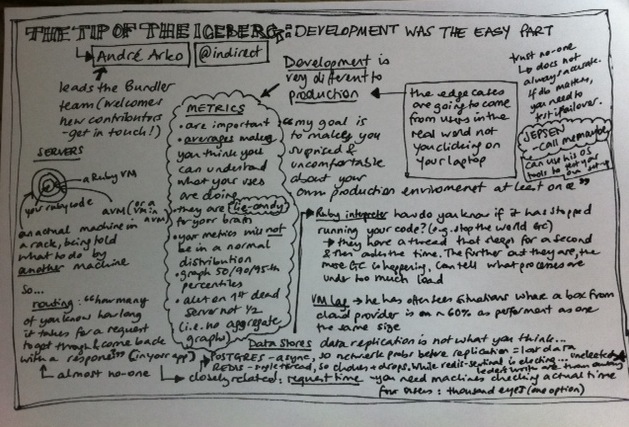 THE TIP OF THE ICEBERG: DEVELOPMENT WAS THE EASY PART
André Arko @indirect
leads the Bundler
team (welcomes
new contributors
- get in touch!)
Development is
very different to
production
the edge cases
are going to come
from users in the
real world not
you clicking on
your laptop
trust no-one
does not
always
If do matter,
you need to
test failover.
JEPSEN
-call me maybe
can use his OS
tools to test your
own set-up
METRICS
• are important
• averages make
you think you
can understand
what your uses
are doing
they are (lie-candy)
for your brain
• your metrics
be in a normal
distribution
• graph 50/90/95th
percentiles
• alert on 1st dead
server not 1/2
(i.e. no aggregate
graphs)
"my goal is
to make you
suprised &
uncomfortable
about your
own production enviroment at least once"
SERVERS
a Ruby VM
your ruby code
a VM (or a VM in a VM)
an actual machine in
a rack, being told
what to do by
another machine
So...
routing: "how many
of you know how long
it takes for a request
to get through & come back
with a response" (in your app)
almost no-one
Ruby interpreter how do you know if it has stopped
running your code? (e.g. stop the world GC)
they have a thread that sleeps for a second
& then asks the time. The further out they are, the
more GC is happening. Can tell what processes are
under too much load
VM Lag he has often seen situations where a box from
cloud provider is on ~ 60% as performant as one
the same size
Data Stores data replication is not what you think...
POSTGRES - async, so network probs before replication = lost data
REDIS - single thread, so chokes + drops. While redis-sentinel is electing... unelected
leader
closely related: request time - you need machines checking actual time
for users: thousand eyes (one option)